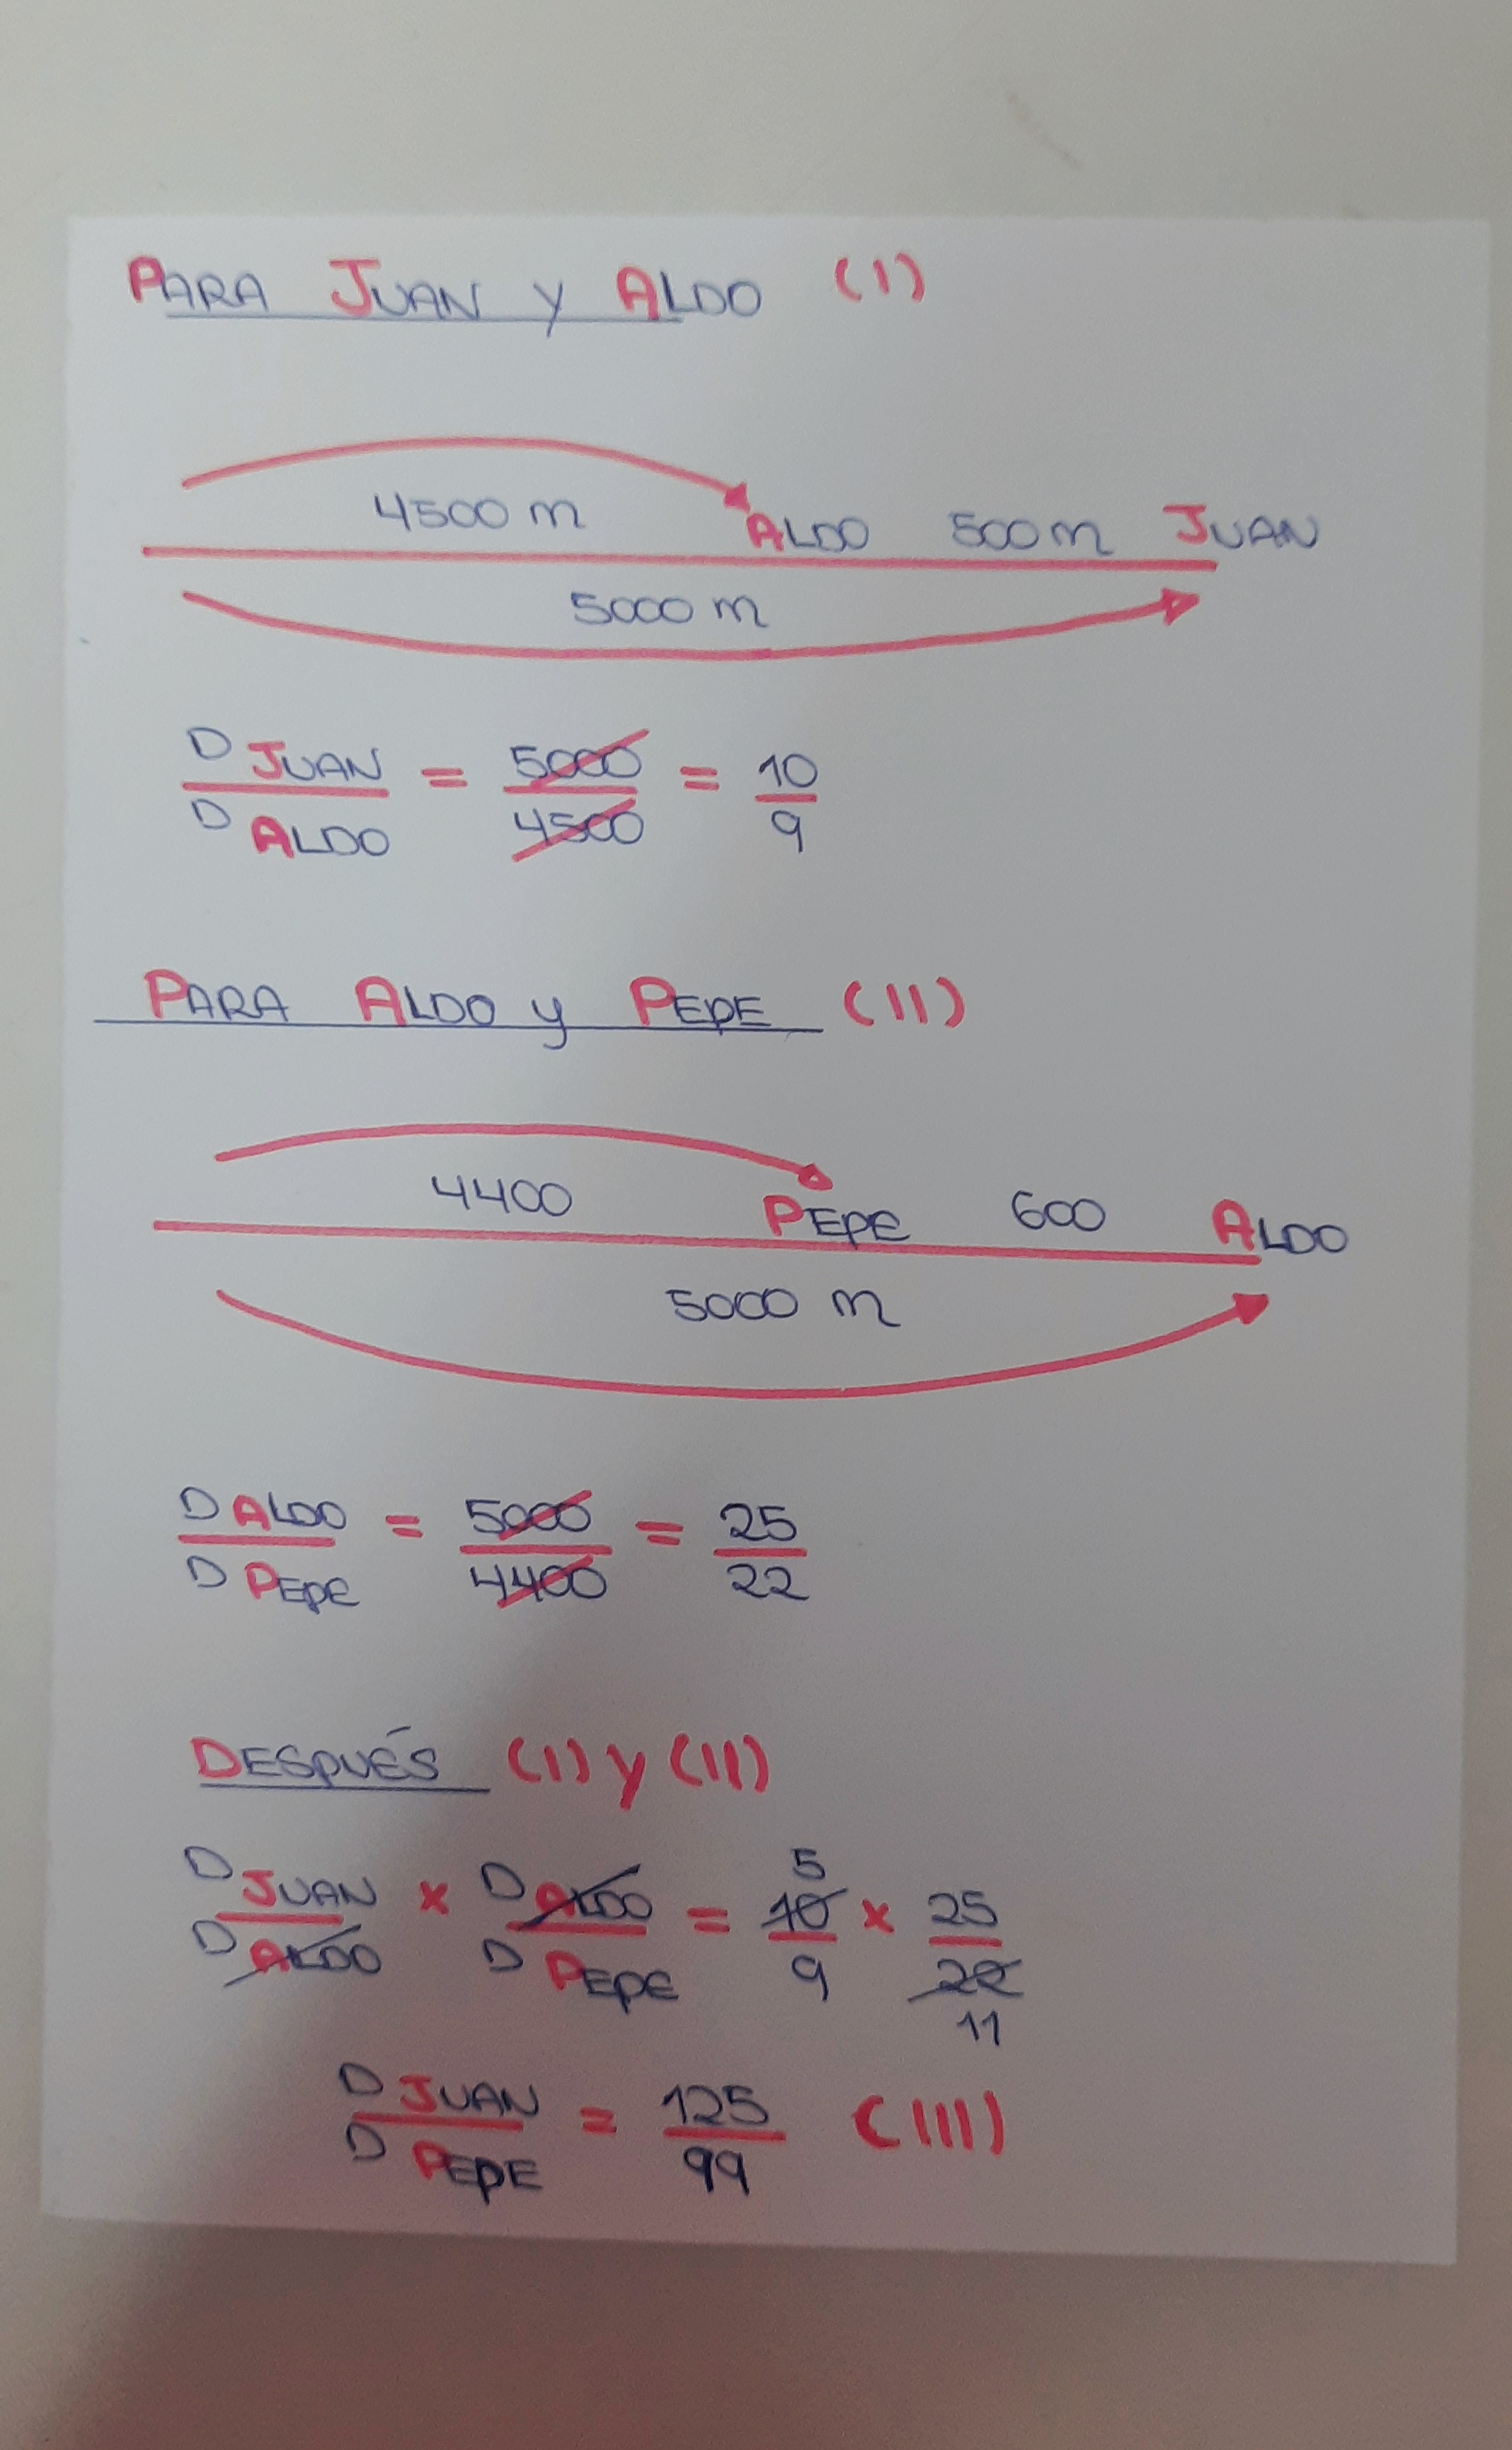 PARA JUAN Y ALDO (I)
4500 m ALDO 500 m JUAN
5000 m
D JUAN / D ALDO = 5000 / 4500 = 10 / 9
PARA ALDO y PEPE (II)
4400 PEPE 600 ALDO
5000 m
D ALDO / D PEPE = 5000 / 4400 = 25 / 22
DESPUÉS (I) y (II)
D JUAN / D ALDO x D ALDO / D PEPE = 5 10 / 9 x 25 / 22 11
D JUAN / D PEPE = 125 / 99 (III)